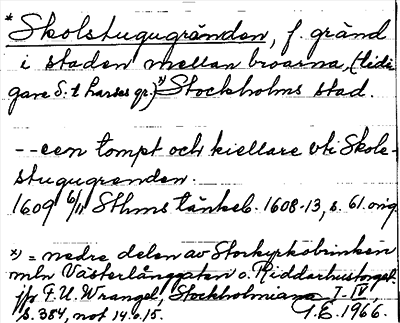 * Skolstugugränden, f. gränd
i staden mellan broarna, (tidi-
gare S:t Larses gr.) x) Stockholms stad.
--een tompt och kiellare vti Skole-
stugugrenden.
1609 6/11 Sthms tänkeb. 1608-13, s. 61. orig.
x) = nedre delen av Storkyrkobrinken
mln Västerlånggatan o. Riddarhustorget.
jfr F.U. Wrangel, Stockholmiana I-IV
s. 384, not 14.o.15. T.E. 1966.